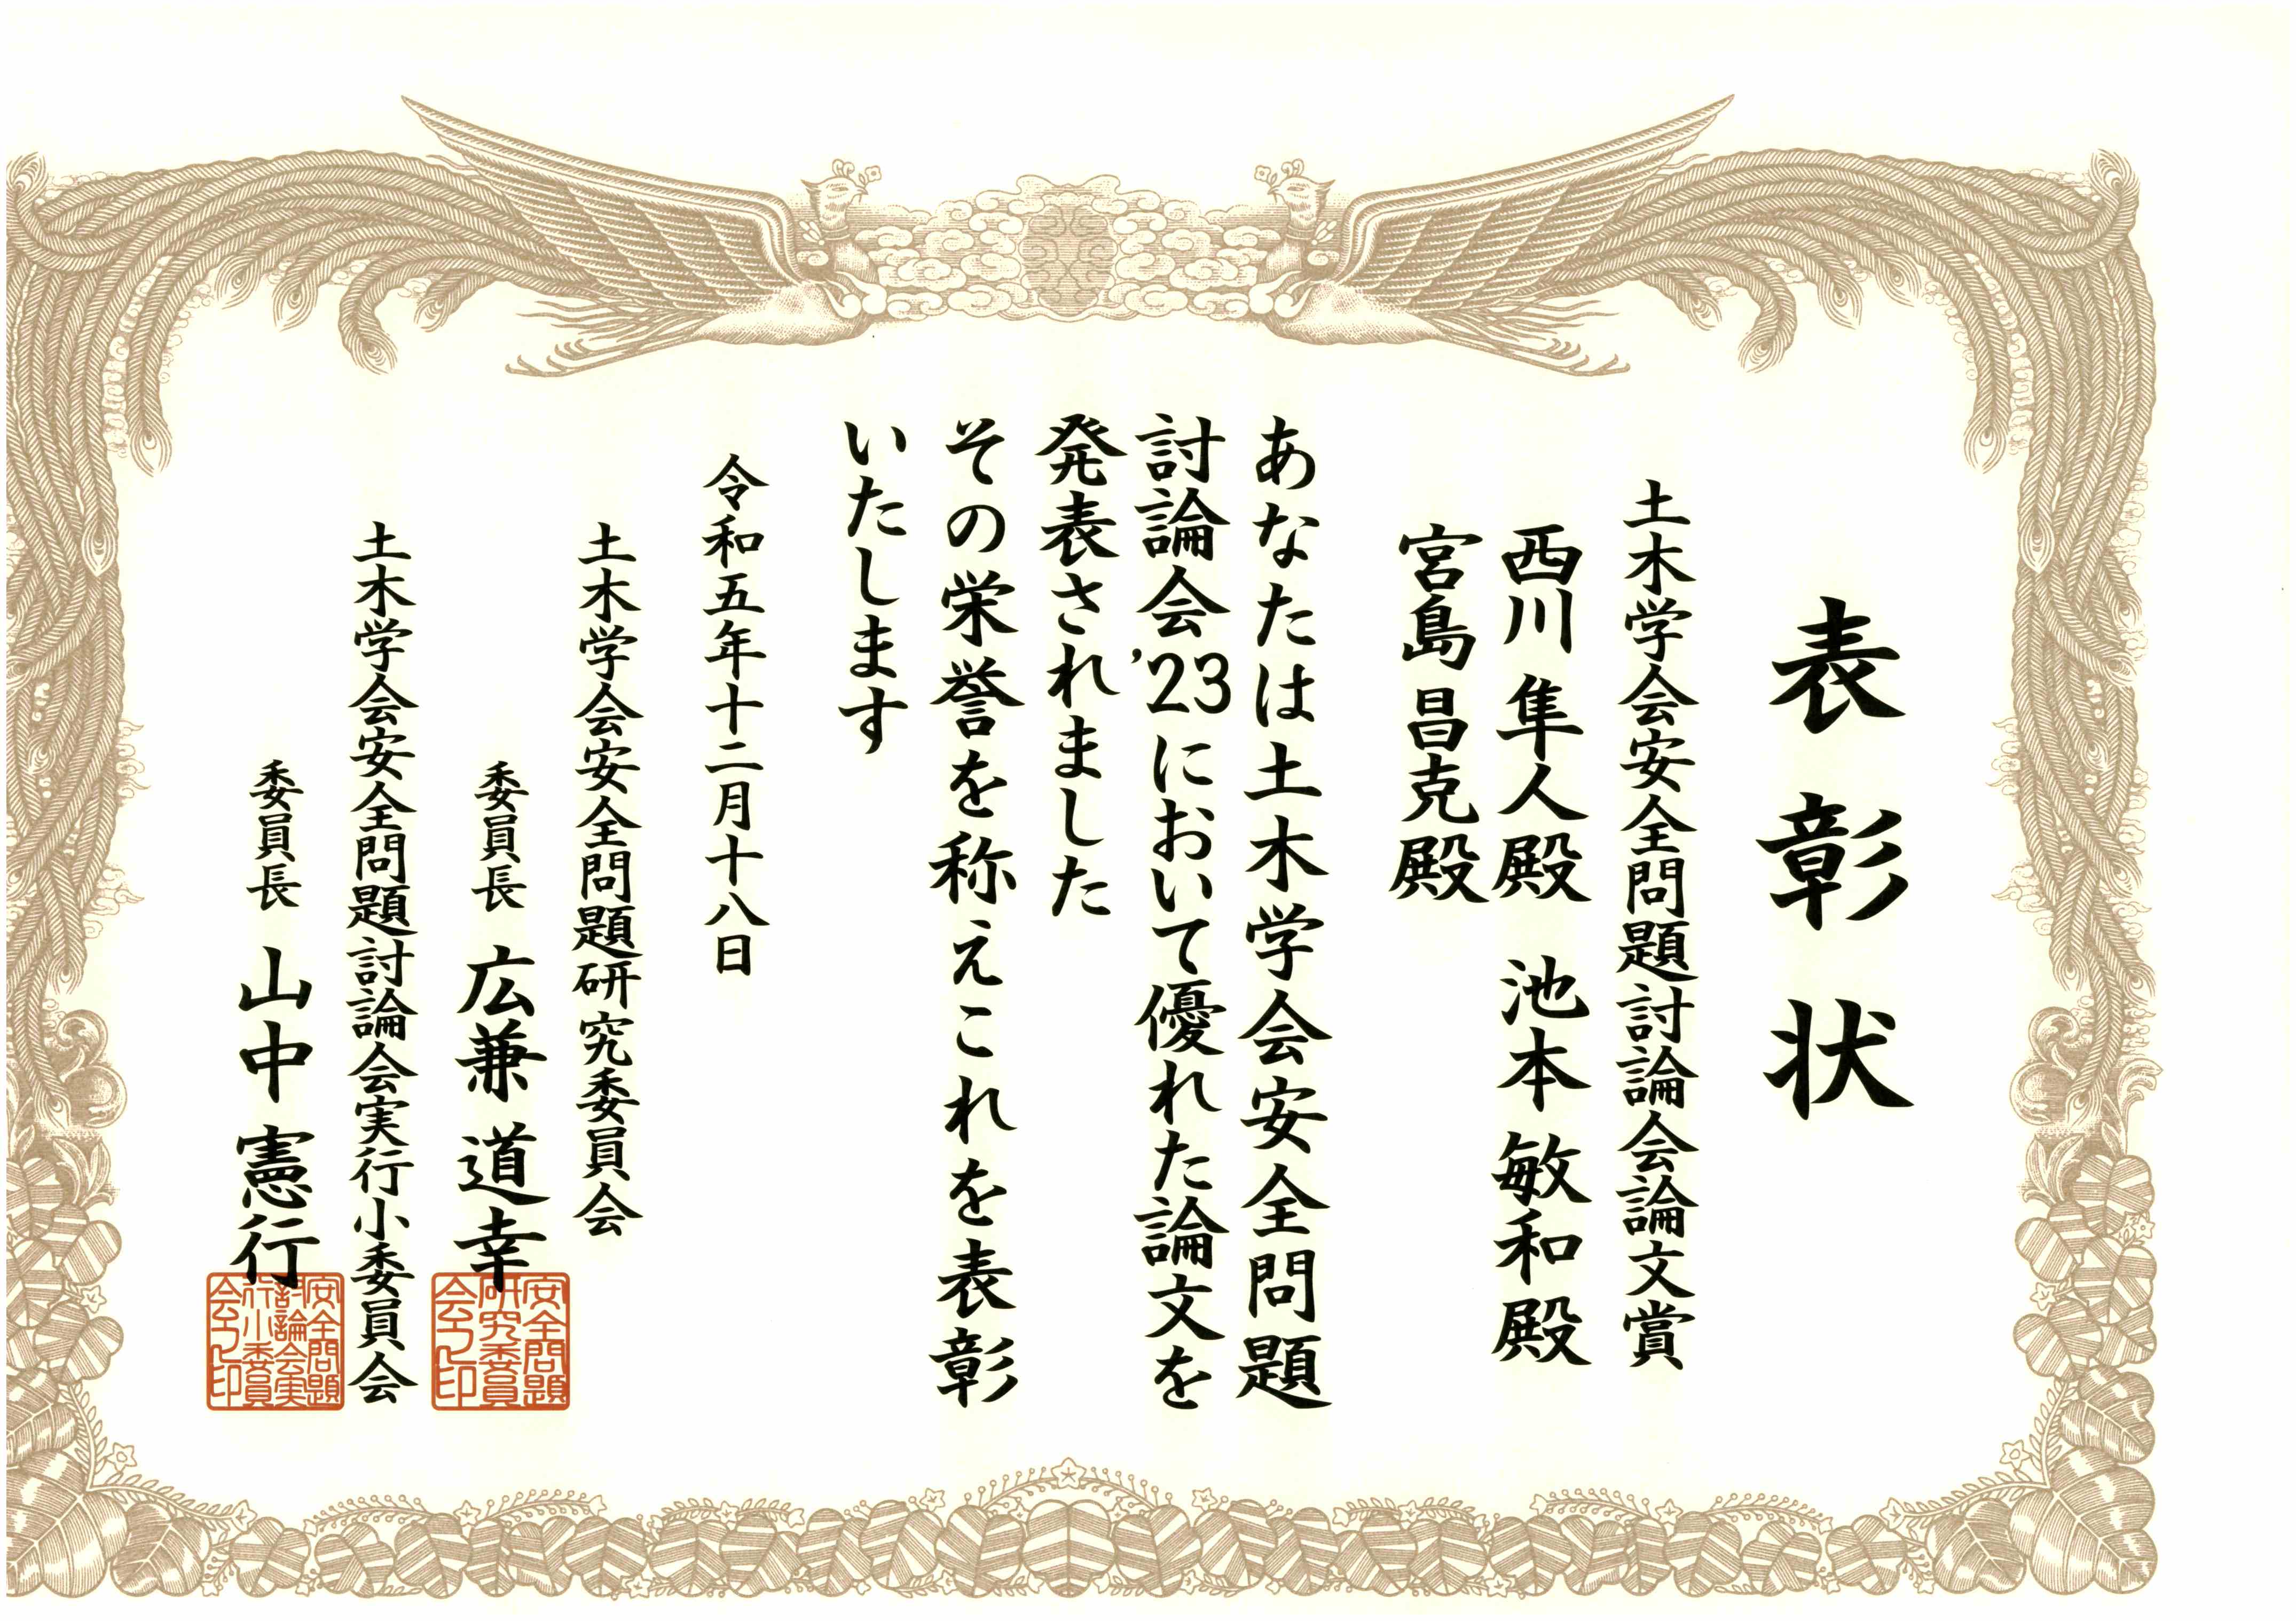 表彰状
土木学会安全問題討論会論文賞
西川 隼人殿 池本 敏和殿
宮島 昌克殿
あなたは土木学会安全問題
討論会'23において優れた論文を
発表されました
その栄誉を称えこれを表彰
いたします
令和五年十二月十八日
土木学会安全問題研究委員会
委員長 広兼 道幸
安全問題
研究委員
会之印
土木学会安全問題討論会実行小委員会
委員長 山中 憲行
安全問題
討論会実
行小委員
会之印